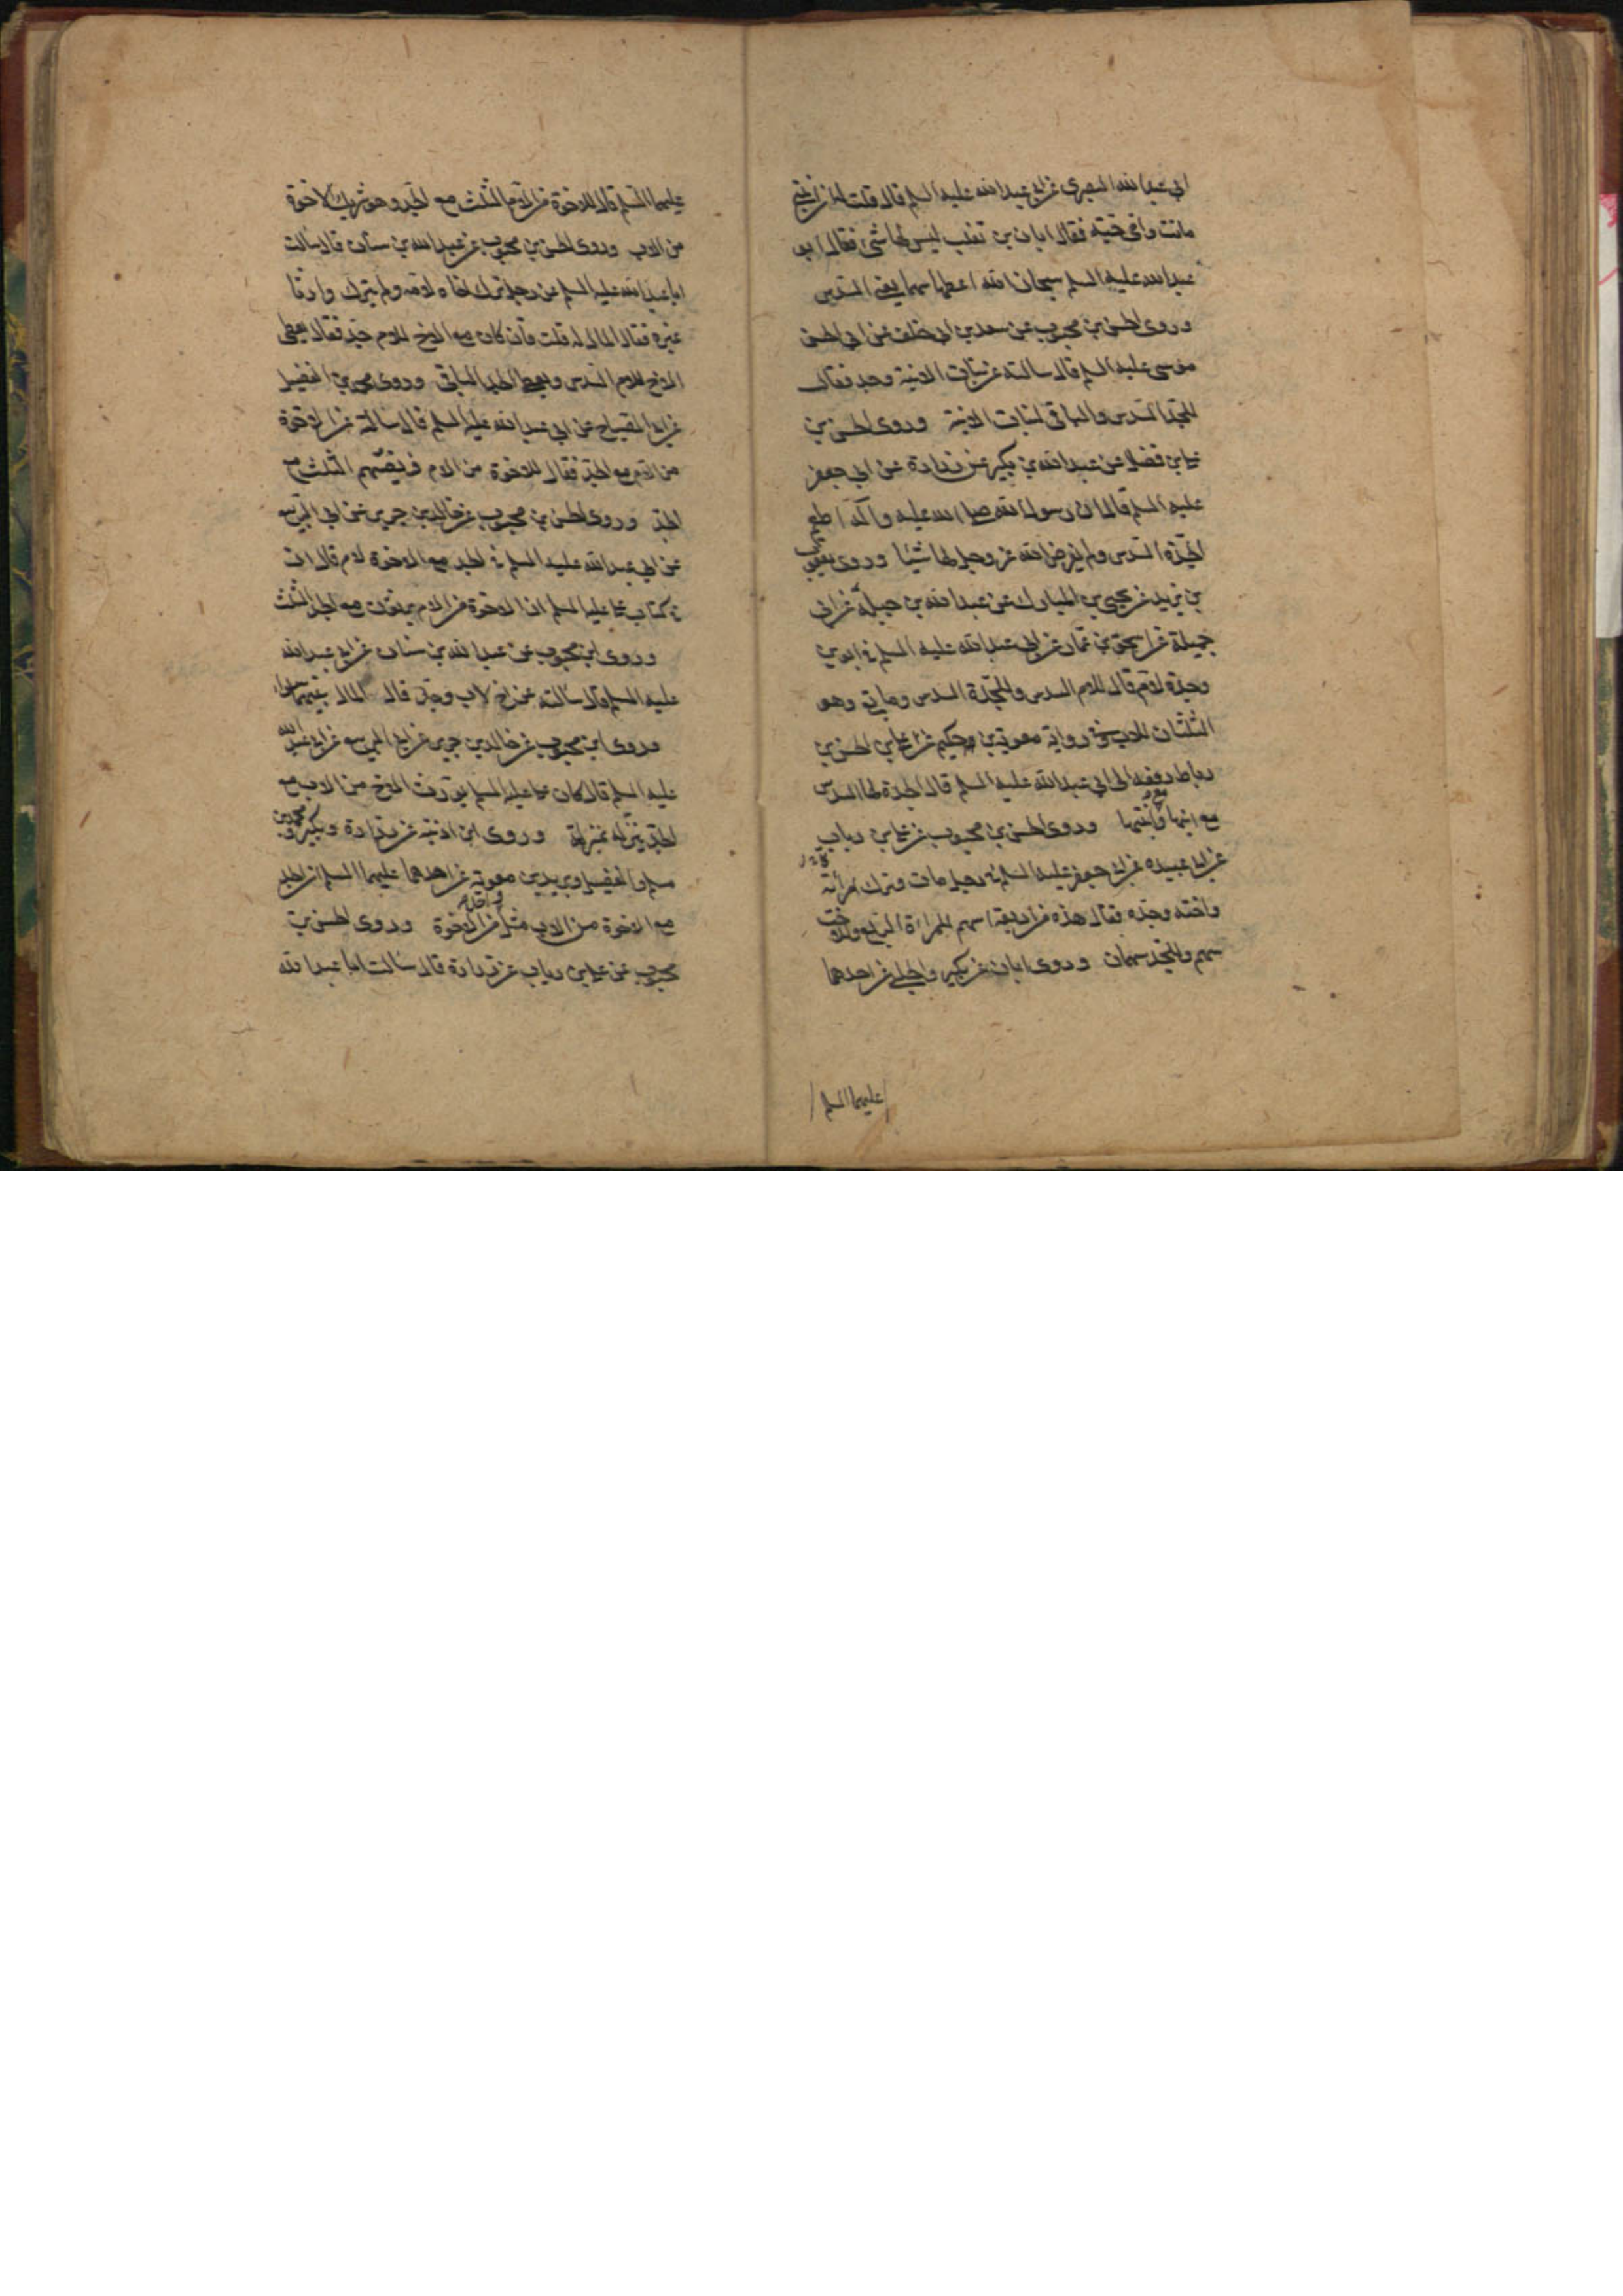 ابي عبد الله البصري عن ابي عبد الله عليه السلم قال قلت له ان ابنتي
ماتت وامي حيّة فقال ابان بن تغلب ليس لها شئ فقال ابو
عبد الله عليه السلم سبحان الله اعطها سهما يعني السدس
وروى الحسن بن محبوب عن سعد بن ابي خلف عن ابي الحسن
موسى عليه السلم قال سالته عن بنات الابنة وجد فقال
للجد السدس والباقي لبنات الابنة وروى الحسن بن
علي بن فضال عن عبد الله بن بكير عن زرارة عن ابي جعفر
عليه السلم قال ان رسول الله صلى الله عليه وآله اطعم
الجدّة السدس ولم يفرض الله عز وجل لها شيئا وروى يعقوب
بن يزيد عن يحيى بن المبارك عن عبد الله بن جبلة عن ابي
جميلة عن اسحق بن عمار عن ابي عبد الله عليه السلم في ابوين
وجدة لام قال للام السدس وللجدة السدس وما بقي وهو
الثلثان للاب وفي رواية معوية بن حكيم عن علي بن الحسن بن
رباط رفعه الى ابي عبد الله عليه السلم قال الجدة لها السدس
مع ابنها ومع ابنتها وروى الحسن بن محبوب عن علي بن رياب
عن ابي عبيده عن ابي جعفر عليه السلم في رجل مات وترك امرأته
واخته وجده فقال هذه من اربعة اسهم للمراة الربع وللاخت
سهم وللجد سهمان وروى ابان عن بكير والحلبي عن احدهما
عليهما السلم
عليهما السلم قال للاخوة من الام الثلث مع الجد وهو شريك الاخوة
من الاب وروى الحسن بن محبوب عن عبد الله بن سنان قال سالت
ابا عبد الله عليه السلم عن رجل ترك اخاه لامه ولم يترك وارثا
غيره فقال المال له قلت فان كان مع الاخ للام جد فقال يعطى
الاخ للام السدس ويعطى الجد الباقي وروى محمد بن الفضيل
عن ابي الصباح عن ابي عبد الله عليه السلم قال سالته عن الاخوة
من الام مع الجد فقال للاخوة من الام فريضتهم الثلث مع
الجد وروى الحسن بن محبوب عن خالد بن جرير عن ابي الربيع
عن ابي عبد الله عليه السلم في الجد مع الاخوة لام قال ان
في كتاب علي عليه السلم ان الاخوة من الام يرثون مع الجد الثلث
وروى ابن محبوب عن عبد الله بن سنان عن ابي عبد الله
عليه السلم قال سالته عن اخ لاب وجد قال المال بينهما سواء
وروى ابن محبوب عن خالد بن جرير عن ابي الربيع عن ابي عبد الله
عليه السلم قال كان علي عليه السلم يورث الاخ من الاب مع
الجد ينزله بمنزلة وروى ابن اذينة عن زرارة وبكير ومحمد بن
مسلم والفضيل وبريد بن معوية عن احدهما عليهما السلم ان الجد
مع الاخوة من الاب مثل واحد من الاخوة وروى الحسن بن
محبوب عن علي بن رياب عن زرارة قال سالت ابا عبد الله